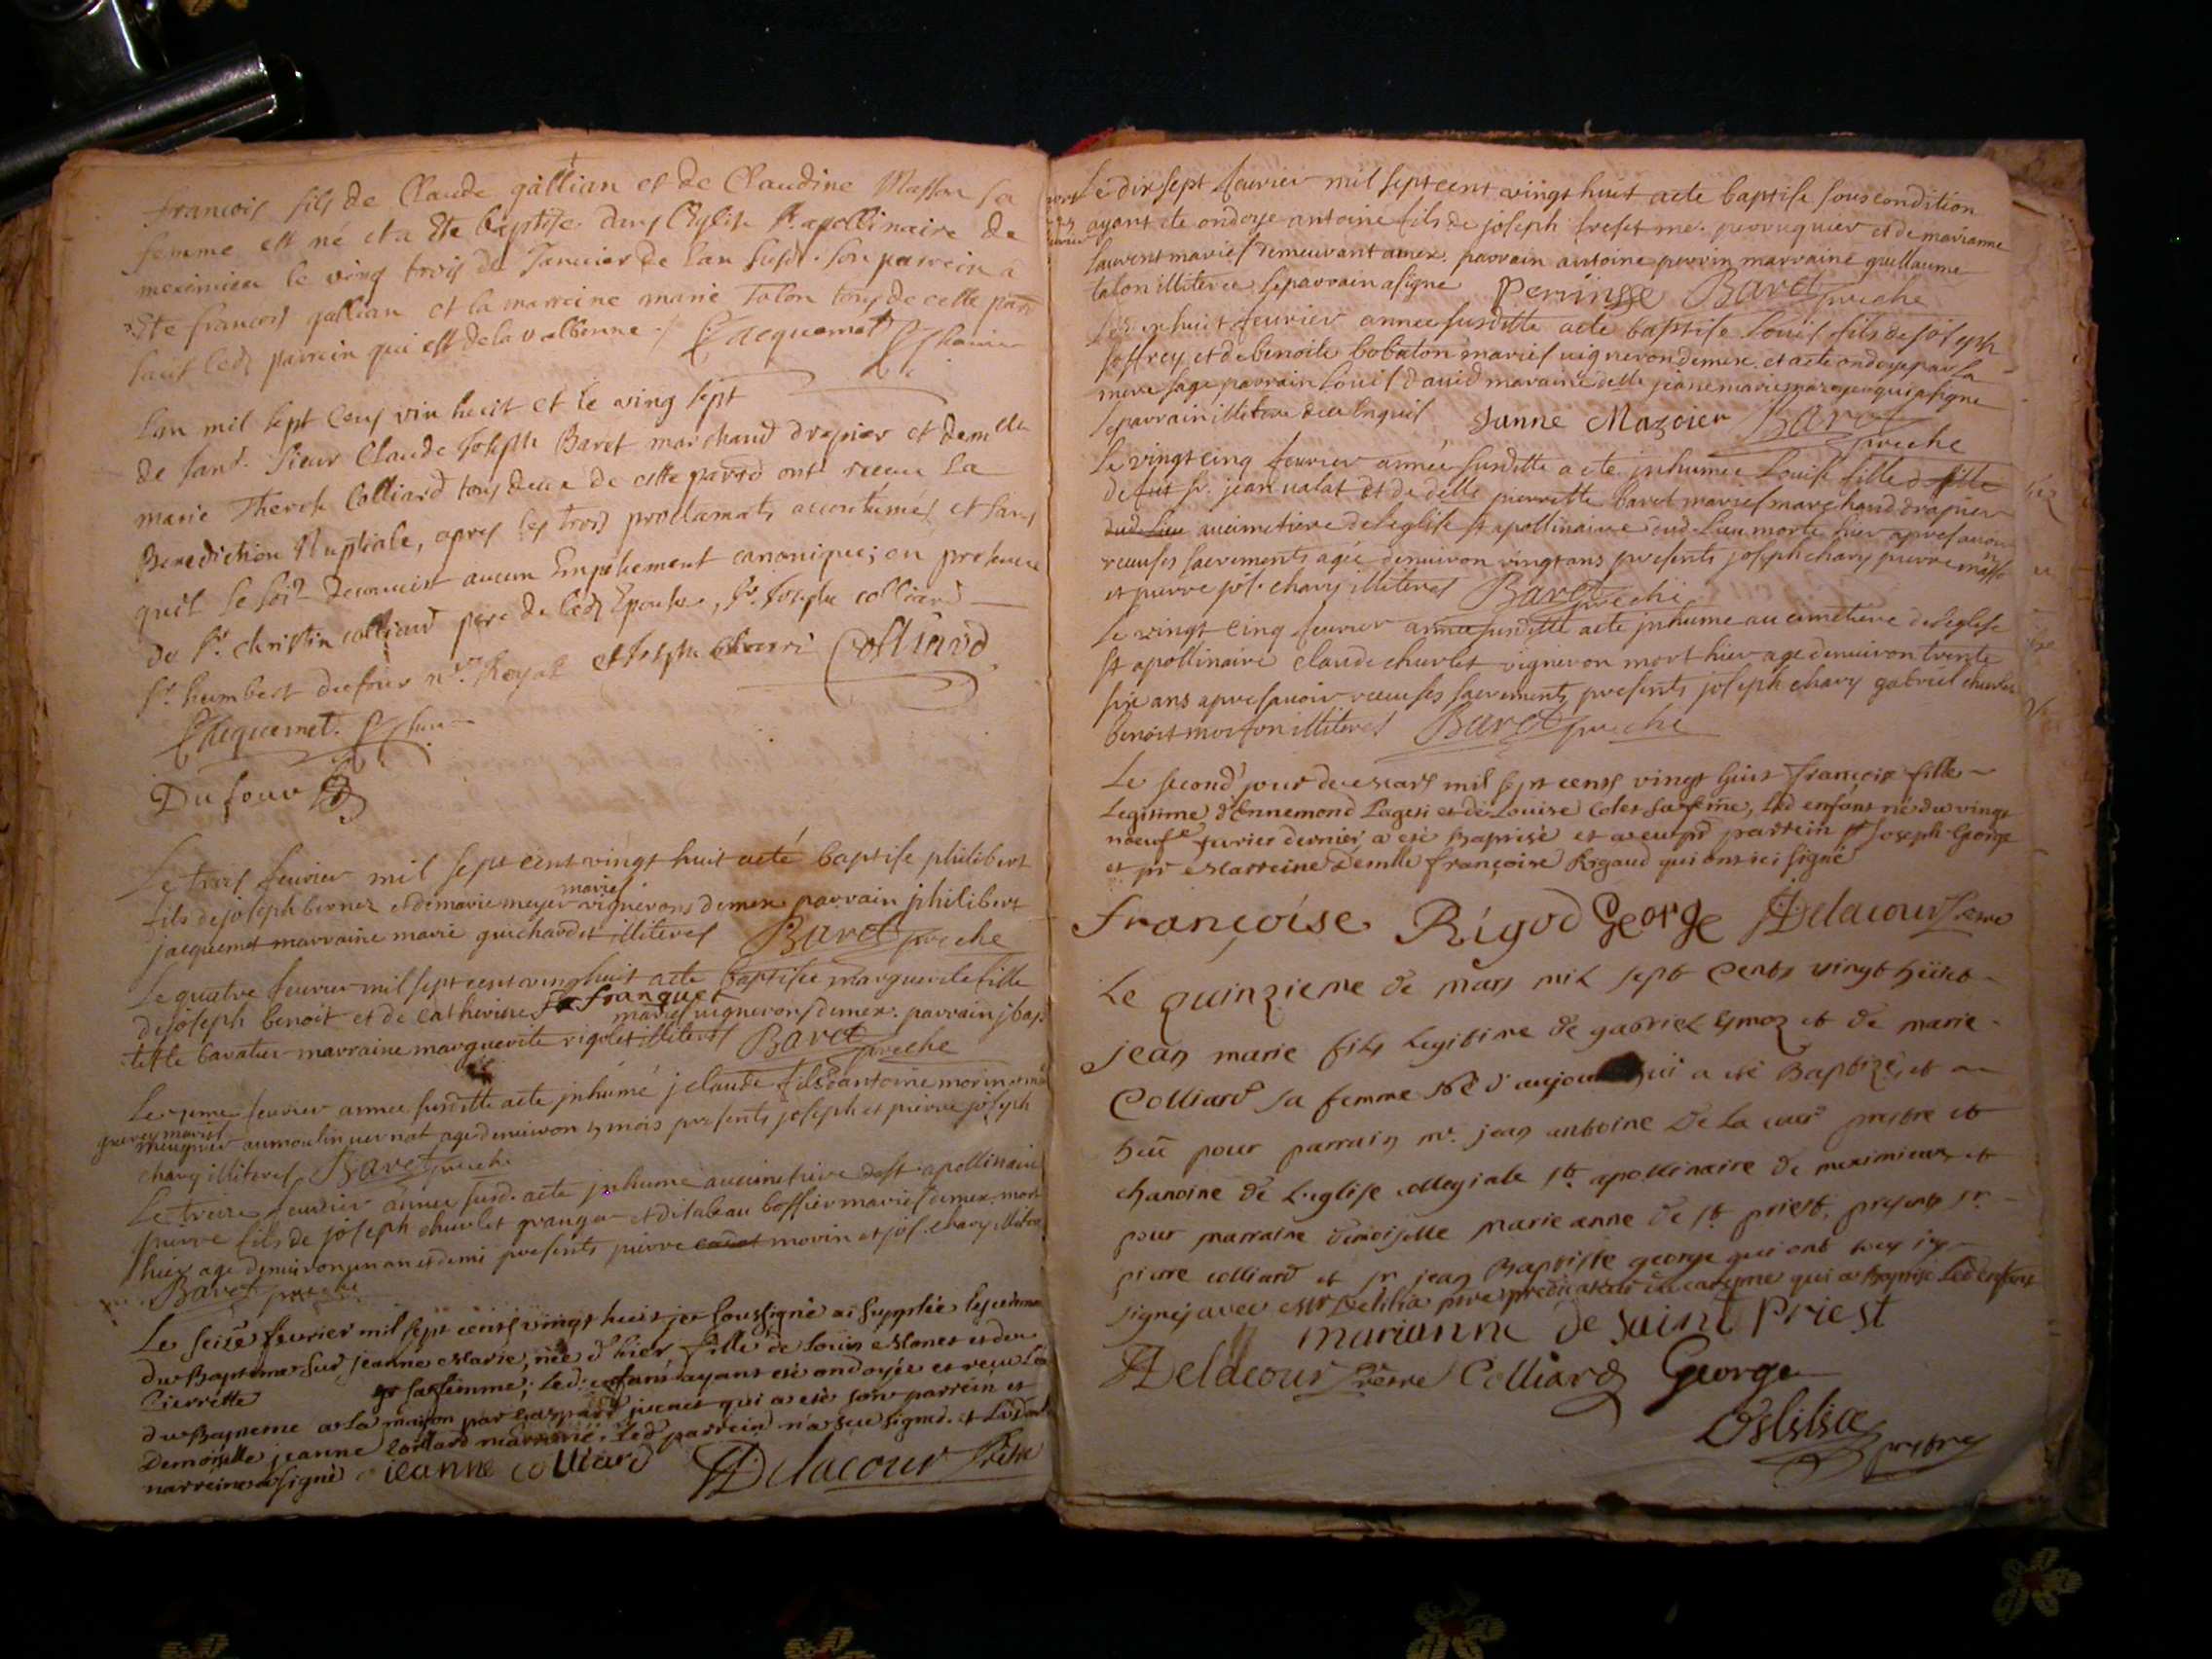 francois fils de Claude gallian et de Claudine Masson sa
femme est né et a Ete baptise dans l'Eglise St. apollinaire de
meximieu le ving trois de Janvier de l'an susd. son parrein a
Ete francois gallian et la marreine marie Talon tous de cette parr
sauf led parrein qui est de la valbonne
Jacquemet
L'an mil sept cens vin huit et le ving sept
de Janv. Sieur Claude Joseph Baret marchand drapier et demlle
marie Therese Colliard tous deux de cette parr ont receu la
Benediction Nuptiale, apres les trois proclamats accoutumés et sans
quil se soit decouvert aucun Empechement canonique; en presence
de Sr. christin colliard pere de lad Epouse, Sr. Joseph colliard
Sr. humbert dufour nre. Royal et Joseph charri Colliard
Jacquemet
Dufour
Le trois fevrier mil sept cent vingt huit a eté baptise philibert
fils de joseph bernez et de marie meyer mariés vignerons de mex. parrain philibert
jacquemet marraine marie guichardet illiteres Baret
Le quatre fevrier mil sept cent vingt huit a ete baptisee marguerite fille
de joseph benoit et de catherine franquet mariés vignerons de mex. parrain j bap
tiste baratier marraine marguerite rigolet illiteres Baret
fevrier annee susditte a ete inhumé j claude fils d antoine morin et
mariés au moulin age denviron mois presents joseph et pierre joseph
chary illiteres Baret
Le treize fevrier annee susd. a ete inhume au cimetiere de st. apollinaire
pierre fils de joseph churlet granger et boffier mariés de mex. mort
hier age denviron un an et demi presents pierre morin et jos. chary illiteres
Baret
Le seize fevrier mil sept cents vingt huit je soussigné ai supplée les ceremo
du Baptême sur jeanne Marie, née d'hier fille de louis Monet et de
Pierrette sa femme; led. enfant ayant esté ondoyée et receu
du Bapteme a la maison par Gaspard qui a eté son parrein et
Demoiselle jeanne Colliard marreine. Led parrein n'a sceu signer et
marreine a signé jeanne colliard Delacour Prêtre
Le dix sept fevrier mil sept cent vingt huit a ete baptise sous condition
ayant ete ondoye antoine fils de joseph me. perruquier et de marianne
laurent mariés demeurant a mex. parrain antoine perrin marraine guillaume
talon illiteree le parrain a signe Baret
Le dix huit fevrier annee susditte a ete baptise louis fils de joseph
joffrey et de benoite bobaton mariés vigneron de mex. et a ete ondoye par la
mere sage parrain louis david maraine delle jeane marie qui a signe
le parrain illitere Janne Mazoier Baret
Le vingt cinq fevrier année susditte a ete inhumee Louise fille
de sr. jean valat et de delle pierrette baret mariés marchand drapier
dud. lieu au cimetiere de l'eglise st apollinaire dud. lieu morte hier apres avoir
receu ses sacrements agée denviron vingt ans presents joseph chary pierre
et pierre jos. chary illiteres Baret
Le vingt cinq fevrier annee susditte a ete inhume au cimetiere de l'eglise
st apollinaire claude churlet vigneron mort hier age denviron trente
six ans apres avoir receu ses sacrements presents joseph chary gabriel churlet
benoit illiteres Baret
Le second jour de Mars mil sept cents vingt huit françoise fille
Legitime d'Ennemond Pageti et de Louise Colet sa feme, led enfant né du vingt
noeuf fevrier dernier a eté Baptisé et a eu pr parrein sr Joseph George
et pr Marreine demlle françoise Rigaud qui ont ici signé
françoise Rigod George Delacour Prêtre
Le quinzieme de mars mil sept Cents vingt huict
jean marie fils legitime de gabriel et de marie
Colliard sa femme né d'aujourd'hui a eté Baptizé et a
heu pour parrain mr. jean antoine De la cour prestre et
chanoine de l'eglise collegiale st. apollinaire de meximieux et
pour marraine demoiselle marie anne de st. priest, presents sr
pierre colliard et sr jean Baptiste george qui ont tous icy
signés avec predicateur du careme qui a Baptisé led enfant
marianne de saint Priest
Delacour Prêtre Colliard George
prestre